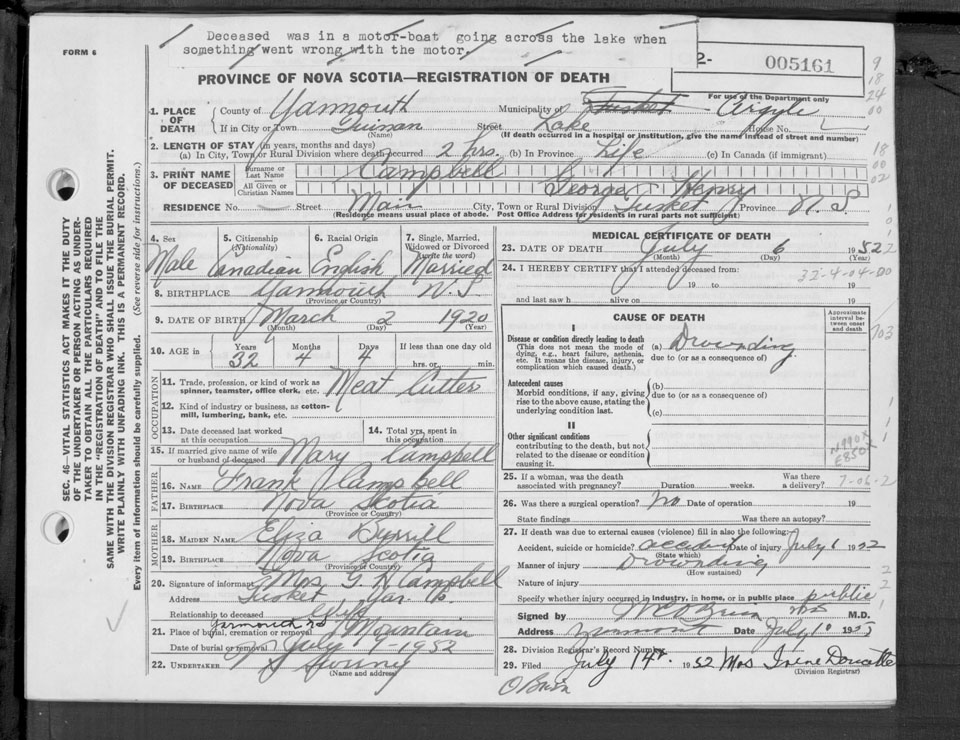 Deceased was in a motor-boat going across the lake when
something went wrong with the motor.
FORM 6
2-
005161
PROVINCE OF NOVA SCOTIA—REGISTRATION OF DEATH
For use of the Department only
1. PLACE OF DEATH
County of Yarmouth Municipality of Tusket Argyle
If in City or Town Quinan Street Lake House No.
(Name) (If death occurred in a hospital or institution, give the name instead of street and number)
2. LENGTH OF STAY (in years, months and days)
(a) In City, Town or Rural Division where death occurred 2 hrs. (b) In Province Life (c) In Canada (if immigrant)
3. PRINT NAME OF DECEASED
Surname or Last Name Campbell
All Given or Christian Names George Henry
RESIDENCE No. Street Main City, Town or Rural Division Tusket Province N. S.
(Residence means usual place of abode. Post Office Address for residents in rural parts not sufficient)
4. Sex Male
5. Citizenship (Nationality) Canadian
6. Racial Origin English
7. Single, Married, Widowed or Divorced (write the word) Married
8. BIRTHPLACE Yarmouth N. S.
(Province or Country)
9. DATE OF BIRTH March 2 1920
(Month) (Day) (Year)
10. AGE in Years 32 Months 4 Days 4 If less than one day old
hrs. or min.
OCCUPATION
11. Trade, profession or kind of work as spinner, teamster, office clerk, etc. Meat Cutter
12. Kind of industry or business, as cotton-mill, lumbering, bank, etc.
13. Date deceased last worked at this occupation
14. Total yrs. spent in this occupation
15. If married give name of wife or husband of deceased Mary Campbell
FATHER
16. NAME Frank Campbell
17. BIRTHPLACE Nova Scotia
(Province or Country)
MOTHER
18. MAIDEN NAME Eliza Burrill
19. BIRTHPLACE Nova Scotia
(Province or Country)
20. Signature of informant Mrs G. H Campbell
Address Tusket Yar. Co.
Relationship to deceased Wife
21. Place of burial, cremation or removal Yarmouth NS Mountain
Date of burial or removal July 9-1952
22. UNDERTAKER
(Name and address)
MEDICAL CERTIFICATE OF DEATH
23. DATE OF DEATH July 6 1952
(Month) (Day) (Year)
24. I HEREBY CERTIFY that I attended deceased from:
19 to 19
and last saw h alive on 19
CAUSE OF DEATH
Approximate interval between onset and death
I
Disease or condition directly leading to death
(This does not mean the mode of dying, e.g., heart failure, asthenia, etc. It means the disease, injury, or complication which caused death.)
(a) Drownding
due to (or as a consequence of)
Antecedent causes
Morbid conditions, if any, giving rise to the above cause, stating the underlying condition last.
(b)
due to (or as a consequence of)
(c)
II
Other significant conditions
contributing to the death, but not related to the disease or condition causing it.
N990X
E850X
25. If a woman, was the death associated with pregnancy? Duration weeks. Was there a delivery?
26. Was there a surgical operation? No Date of operation 19
State findings Was there an autopsy?
27. If death was due to external causes (violence) fill in also the following:
Accident, suicide or homicide? accident Date of injury July 6 1952
(State which)
Manner of injury Drownding
(How sustained)
Nature of injury
Specify whether injury occurred in industry, in home, or in public place public
Signed by M.D.
Address Date July 10 195
28. Division Registrar's Record Number
29. Filed July 14th. 1952 Mrs Irene Doucette
(Division Registrar)
O'Brien
SEC. 46—VITAL STATISTICS ACT MAKES IT THE DUTY
OF THE UNDERTAKER OR PERSON ACTING AS UNDER-
TAKER TO OBTAIN ALL THE PARTICULARS REQUIRED
IN THE "REGISTRATION OF DEATH" AND TO FILE THE
SAME WITH THE DIVISION REGISTRAR WHO SHALL ISSUE THE BURIAL PERMIT.
WRITE PLAINLY WITH UNFADING INK. THIS IS A PERMANENT RECORD.
Every item of information should be carefully supplied. (See reverse side for instructions.)